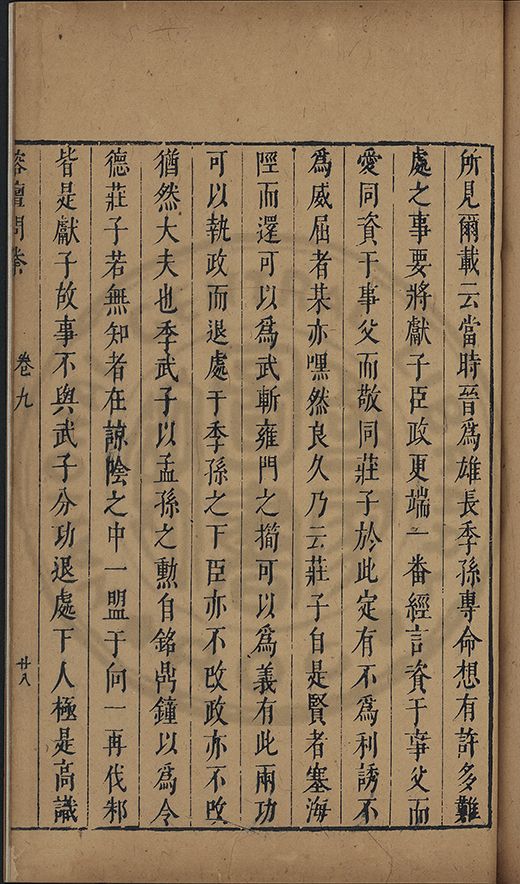 所見爾載云當時晉為雄長季孫專命想有許多難
處之事要將獻子臣政更端一番經言資于事父而
愛同資于事父而敬同莊子於此定有不為利誘不
為威屈者某亦嘿然良久乃云莊子自是賢者塞海
陘而還可以為武斬雍門之橁可以為義有此兩功
可以執政而退處于季孫之下臣亦不改政亦不改
猶然大夫也季武子以孟孫之勲自銘鼎鐘以為令
德莊子若無知者在諒陰之中一盟于向一再伐邾
皆是獻子故事不與武子分功退處下人極是高識
榕壇問業
卷九
廿八